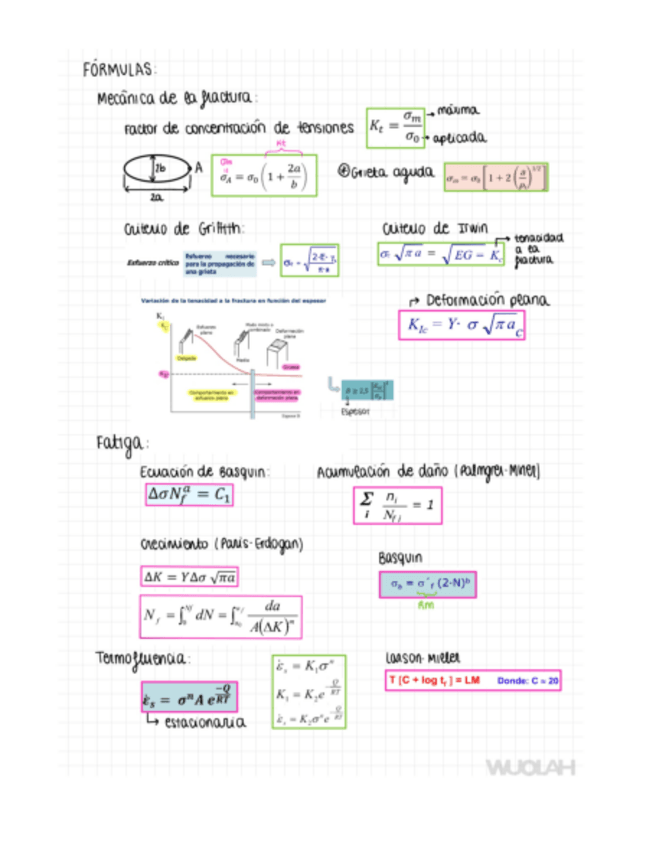 FÓRMULAS:
Mecánica de la fractura:
Factor de concentración de tensiones
K_t = σ_m / σ_0
máxima
aplicada
Kt
2b
A
2a
σ_m
σ_A = σ_0 (1 + 2a/b)
Grieta aguda
σ_m = σ_0 [1 + 2 (a/ρ_t)^1/2]
Criterio de Griffith:
Esfuerzo crítico
Esfuerzo necesario
para la propagación de
una grieta
Criterio de Irwin
σ √π a = √EG = K
tenacidad
a la
fractura
Deformación plana
K_Ic = Y· σ √π a_c
Variación de la tenacidad a la fractura en función del espesor
Esfuerzo
plano
Modo mixto o
combinado
Deformación
plana
Delgada
Media
Gruesa
Comportamiento en
esfuerzo plano
Comportamiento en
deformación plana
Espesor B
Espesor
Fatiga:
Ecuación de Basquin:
ΔσN_f^a = C_1
Acumulación de daño (Palmgrei-Miner)
Σ_i n_i / N_fi = 1
Crecimiento (Paris-Erdogan)
ΔK = YΔσ √πa
N_f = ∫_0^Nf dN = ∫_a0^af da / A(ΔK)^n
Basquin
σ_a = σ´_f (2·N)^b
Rm
Termofluencia:
ε̇_s = σ^n A e^-Q/RT
estacionaria
ε̇_s = K_1σ^n
K_1 = K_2e^-Q/RT
ε̇_s = K_2σ^ne^-Q/RT
Larson-Miller
T [C + log t_r ] = LM Donde: C ≈ 20
WUOLAH